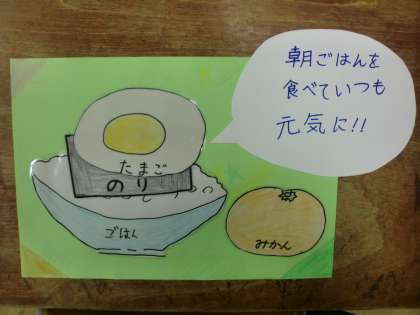 朝ごはんを
食べていつも
元気に!!
たまご
のり
ごはん
みかん